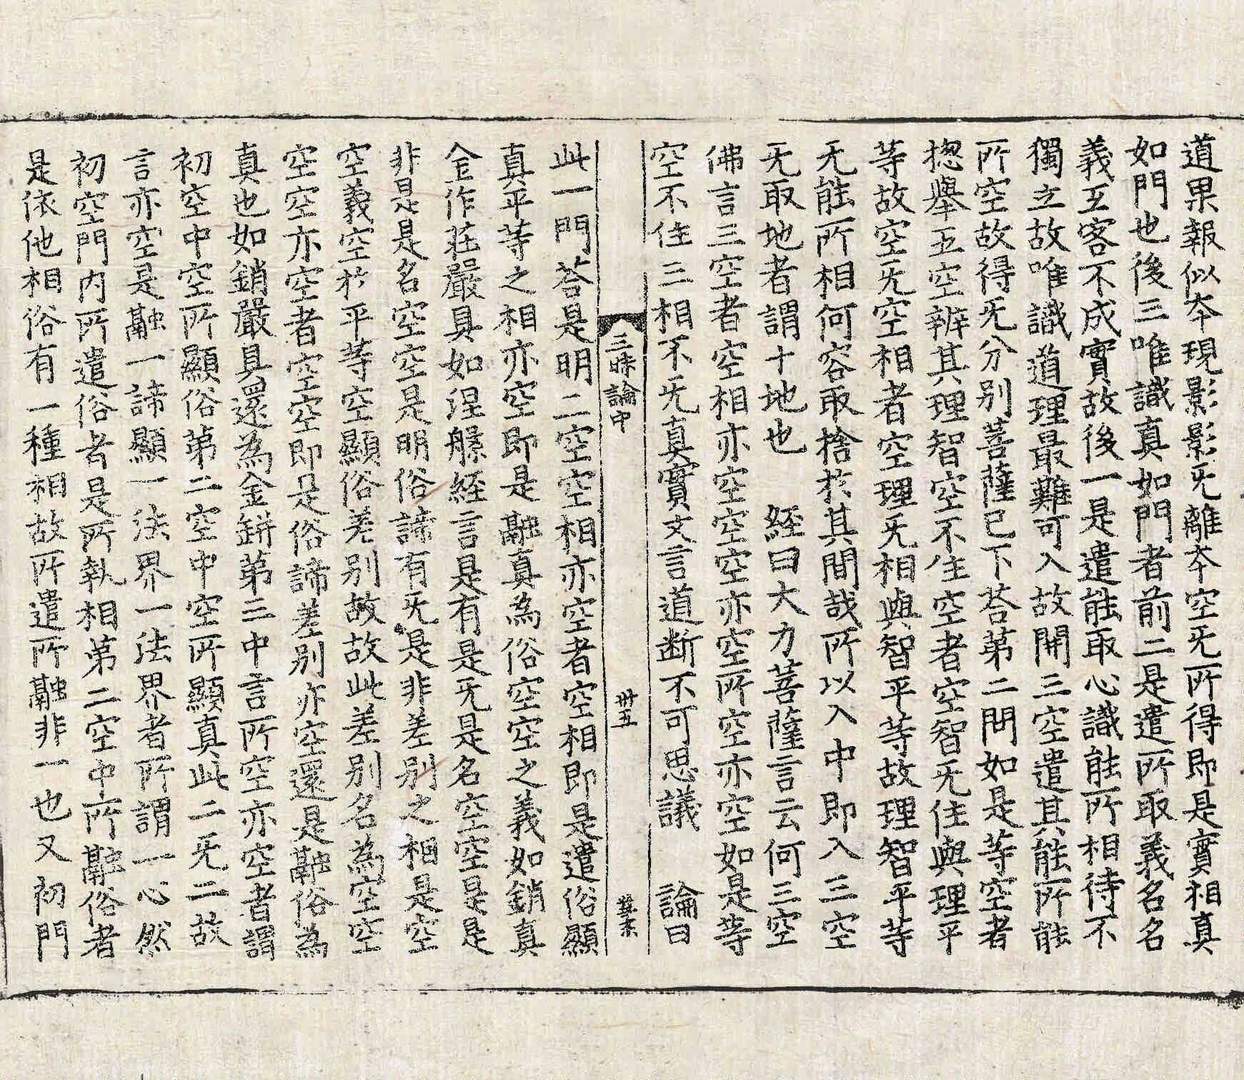 道果報似夲現影影旡離夲空旡所得即是實相真
如門也後三唯識真如門者前二是遣所取義名名
義互客不成實故後一是遣能取心識能所相待不
獨立故唯識道理最難可入故開三空遣其能所能
所空故得旡分別菩薩已下荅第二問如是等空者
摠舉五空辨其理智空不住空者空智旡住與理平
等故空旡空相者空理旡相與智平等故理智平等
旡能所相何容取捨於其間哉所以入中即入三空
旡取地者謂十地也 經曰大力菩薩言云何三空
佛言三空者空相亦空空空亦空所空亦空如是等
空不住三相不旡真實文言道断不可思議 論曰
三昧論中 卅五 奠素
此一門荅是明二空空相亦空者空相即是遣俗顯
真平等之相亦空即是融真為俗空空之義如銷真
金作莊嚴具如涅槃經言是有是旡是名空空是是
非是是名空空是明俗諦有旡是非差别之相是空
空義空於平等空顯俗差别故故此差别名為空空
空空亦空者空空即是俗諦差别亦空還是融俗為
真也如銷嚴具還為金鉼第三中言所空亦空者謂
初空中空所顯俗苐二空中空所顯真此二旡二故
言亦空是融一諦顯一法界一法界者所謂一心然
初空門内所遣俗者是所執相第二空中所融俗者
是依他相俗有一種相故所遣所融非一也又初門